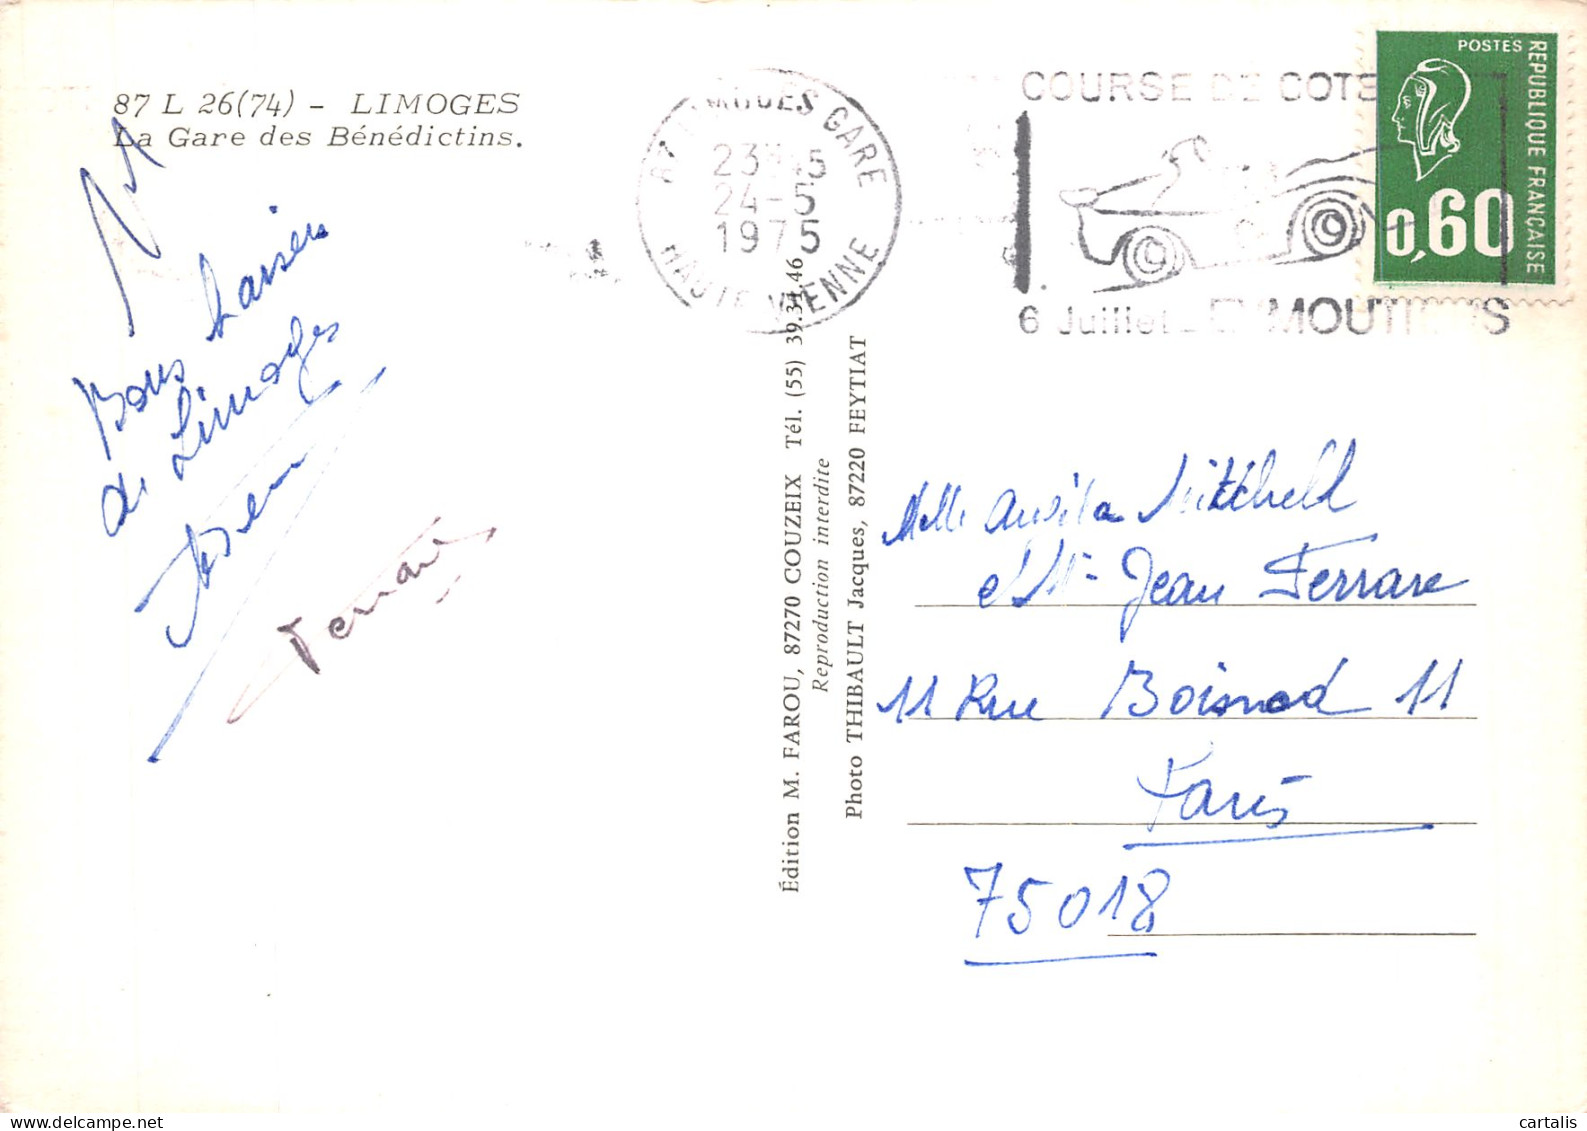 87 L 26(74) - LIMOGES
La Gare des Bénédictins.
Bons baisers
de Limoges
GARE
24-5
1975
HAUTE VIENNE
COURSE DE COTE
6 Juillet - EYMOUTIERS
POSTES
REPUBLIQUE FRANÇAISE
0,60
Édition M. FAROU, 87270 COUZEIX Tél. (55) 39.31.46
Reproduction interdite
Photo THIBAULT Jacques, 87220 FEYTIAT
Melle Mittchell
et Mr Jean Ferrare
11 Rue Boisnod 11
Paris
75018
cartalis